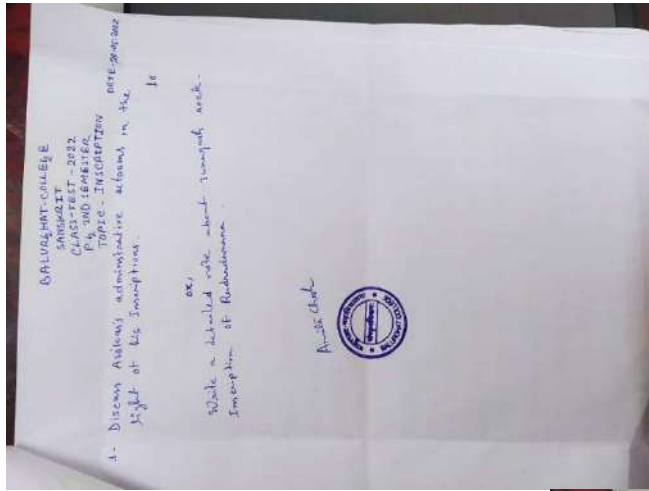 BALURGHAT-COLLEGE
SANSKRIT
CLASS-TEST - 2022
P.G 2ND SEMESTER
TOPIC - INSCRIPTION DATE-20-05-2022
1- Discuss Asoka's administrative reforms in the
light of his Inscriptions. 10
OR,
Write a detailed note about Junagarh rock-
Inscription of Rudradamana.